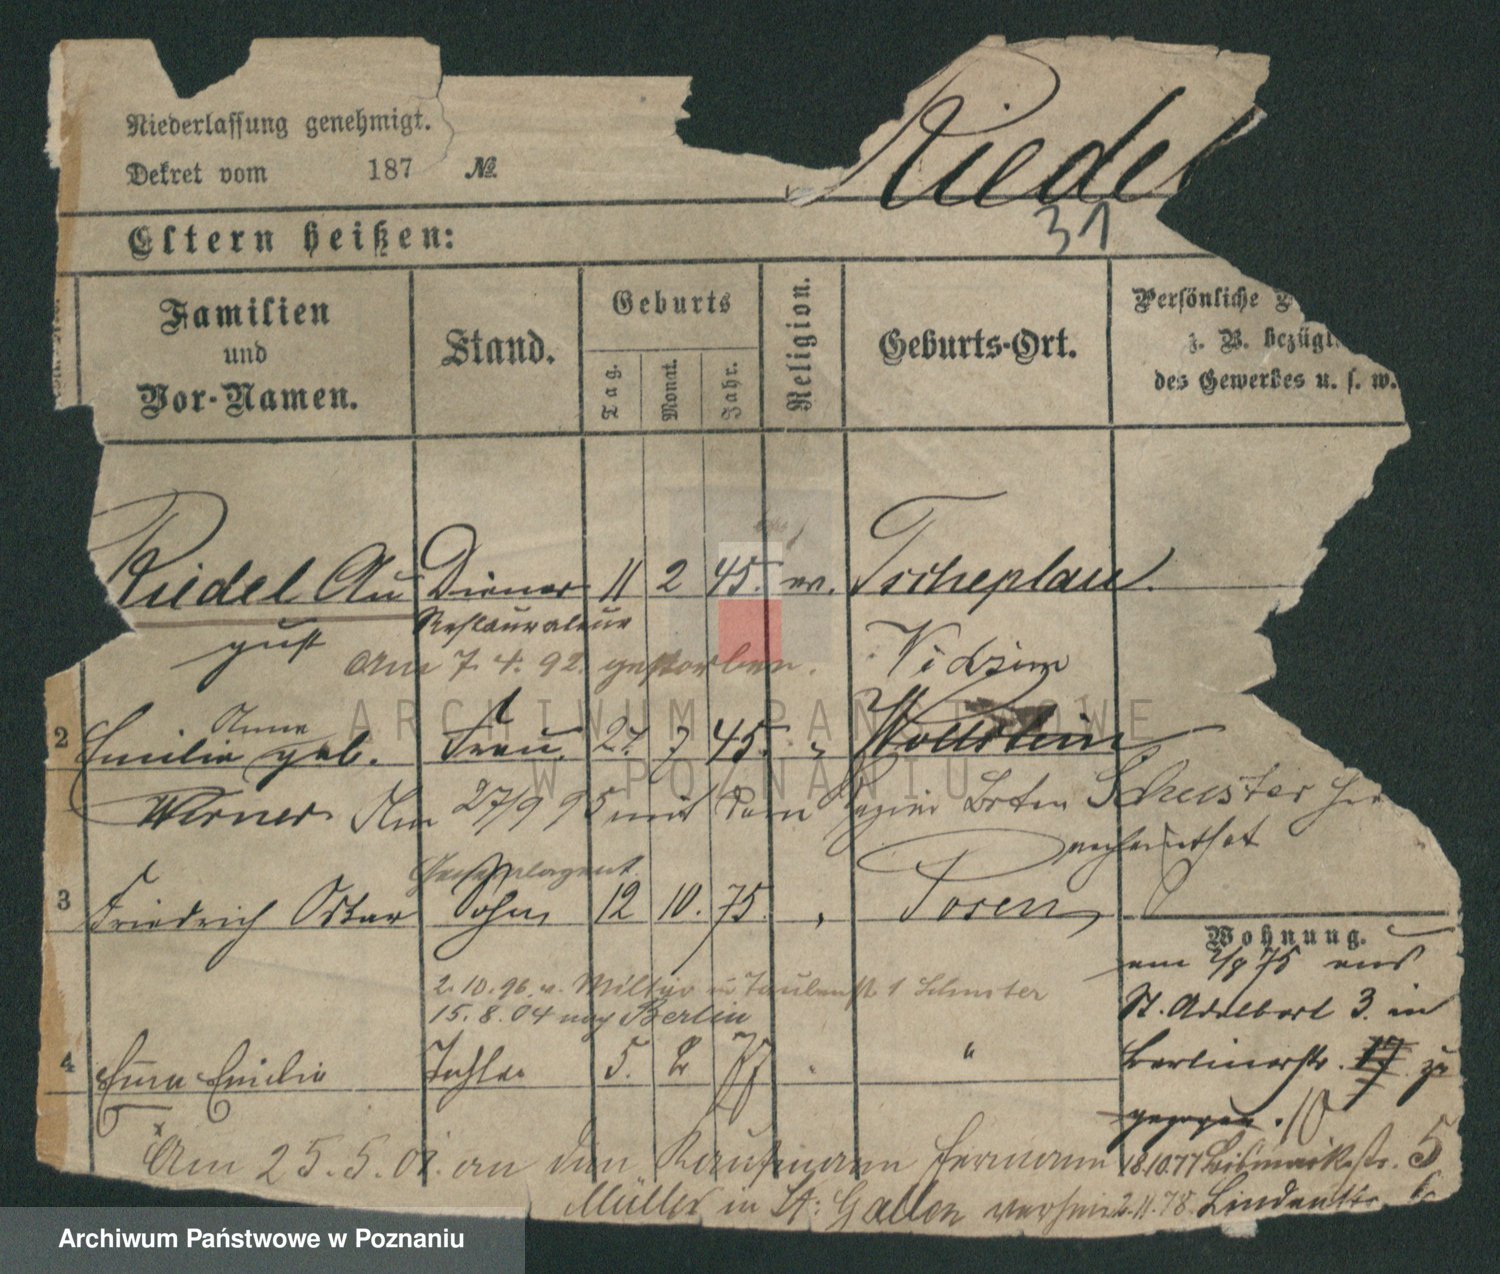 Niederlassung genehmigt.
Dekret vom 187 №
Riedel
31
Eltern heißen:
Familien und Vor-Namen.
Stand.
Geburts
Tag.
Monat.
Jahr.
Religion.
Geburts-Ort.
Persönliche
z. B. bezügl.
des Gewerbes u. s. w.
Riedel Au Diener 11 2 45. ev. Tscheplau.
gust Restaurateur
am 7. 4. 92. gestorben. Widzim
Anna
2 Emilie geb. Frau. 24. 7 45. " Wollstein
Werner Am 27/9 95 mit dem Schuster
verheirathet
3 Friedrich Oskar Sohn 12 10. 75. " Posen
Wohnung.
am 2/9 75 aus
2. 10. 96. v. Militär Taubenstr 1 Schuster
St. Adalbert 3. in
15. 8. 04 nach Berlin
Berlinerstr. 17 zu
4 Emilie Tochter 5. 77 " "
gezogen. 10
Am 25. 5. 01. an den Kaufmann Hermann
18.10.77 Bismarckstr. 5
Müller in St. Gallen verhei
2.11.78. Lindenstr. 6
ARCHIWUM PAŃSTWOWE
W POZNANIU
Archiwum Państwowe w Poznaniu